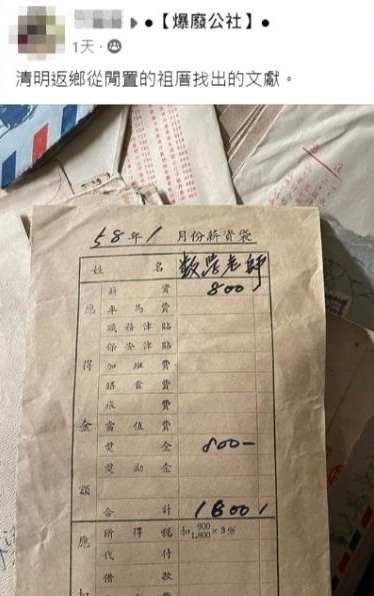 【爆廢公社】
1天
清明返鄉從閒置的祖厝找出的文獻。
58年1月份薪資袋
姓名 數學老師
應得金額
薪資 800
車馬費
職務津貼
保安津貼
加班費
膳食費
旅費
當值費
獎金 800-
獎勵金
合計 1800
應扣
所得稅 扣 900 1,800 ×3%
代付
借款